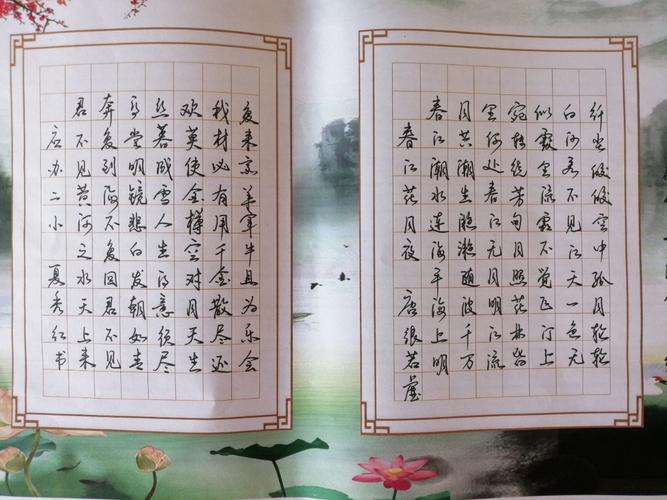 应办二小 夏秀红书
君不见黄河之水天上来
奔流到海不复回君不见
高堂明镜悲白发朝如青
丝暮成雪人生得意须尽
欢莫使金樽空对月天生
我材必有用千金散尽还
复来烹羊宰牛且为乐会
春江花月夜 唐 张若虚
春江潮水连海平海上明
月共潮生滟滟随波千万
里何处春江无月明江流
宛转绕芳甸月照花林皆
似霰空流霜不觉飞汀上
白沙看不见江天一色无
纤尘皎皎空中孤月轮轮